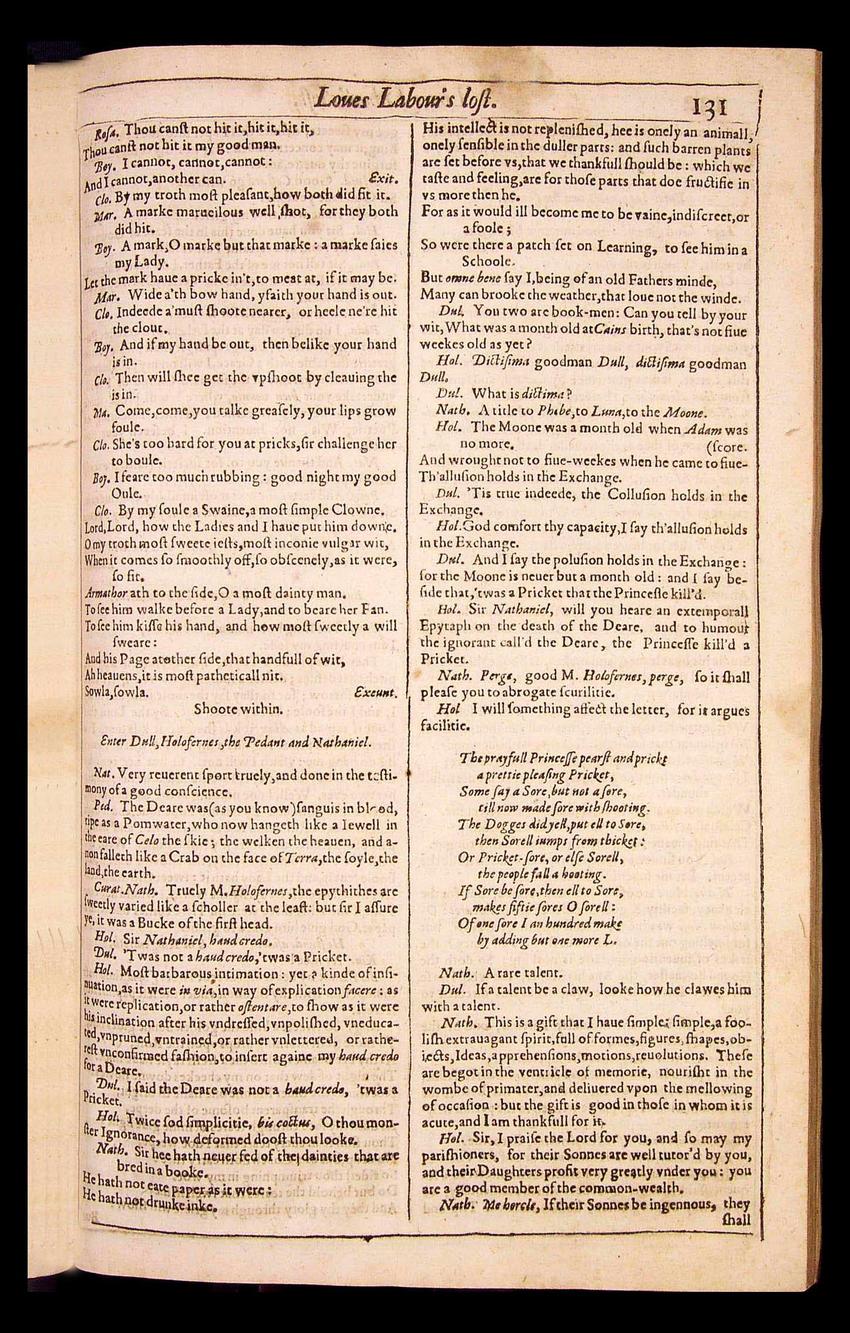 Loues Labour's lost.
131
Rosa. Thou canſt not hit it,hit it,hit it,
Thou canſt not hit it my good man.
Boy. I cannot, cannot,cannot:
And I cannot,another can. Exit.
Clo. By my troth moſt pleaſant,how both did fit it.
Mar. A marke marueilous well ſhot, for they both
did hit.
Boy. A mark,O marke but that marke: a marke ſaies
my Lady.
Let the mark haue a pricke in't,to meat at, if it may be.
Mar. Wide a'th bow hand, yfaith your hand is out.
Clo. Indeede a'muſt ſhoote nearer, or heele ne're hit
the clout.
Boy. And if my hand be out, then belike your hand
is in.
Clo. Then will ſhee get the vpſhoot by cleauing the
is in.
Ma. Come,come,you talke greaſely, your lips grow
foule.
Clo. She's too hard for you at pricks,ſir challenge her
to boule.
Boy. I feare too much rubbing: good night my good
Oule.
Clo. By my ſoule a Swaine,a moſt ſimple Clowne.
Lord,Lord, how the Ladies and I haue put him downe.
O my troth moſt ſweete ieſts,moſt inconie vulgar wit,
When it comes ſo ſmoothly off,ſo obſcenely,as it were,
ſo fit.
Armathor ath to the ſide,O a moſt dainty man.
To ſee him walke before a Lady,and to beare her Fan.
To ſee him kiſſe his hand, and how moſt ſweetly a will
ſweare:
And his Page atother ſide,that handfull of wit,
Ah heauens,it is moſt patheticall nit.
Sowla,ſowla. Exeunt.
Shoote within.
Enter Dull,Holofernes,the Pedant and Nathaniel.
Nat. Very reuerent ſport truely,and done in the teſti-
mony of a good conſcience.
Ped. The Deare was(as you know)ſanguis in blood,
ripe as a Pomwater,who now hangeth like a Iewell in
the eare of Celo the ſkie; the welken the heauen, and a-
non falleth like a Crab on the face of Terra,the ſoyle,the
land,the earth.
Curat.Nath. Truely M.Holofernes,the epythithes are
ſweetly varied like a ſcholler at the leaſt: but ſir I aſſure
ye, it was a Bucke of the firſt head.
Hol. Sir Nathaniel, haud credo.
Dul. 'Twas not a haud credo,'twas a Pricket.
Hol. Moſt barbarous intimation: yet a kinde of inſi-
nuation,as it were in via,in way of explication facere: as
it were replication,or rather oſtentare,to ſhow as it were
his inclination after his vndreſſed,vnpoliſhed, vneduca-
ted,vnpruned,vntrained,or rather vnlettered, or rathe-
reſt vnconfirmed faſhion,to inſert againe my haud credo
for a Deare.
Dul. I ſaid the Deare was not a haud credo, 'twas a
Pricket.
Hol. Twice ſod ſimplicitie, bis coctus, O thou mon-
ſter Ignorance, how deformed dooſt thou looke.
Nath. Sir hee hath neuer fed of the dainties that are
bred in a booke.
He hath not eate paper as it were:
He hath not drunke inke.
His intellect is not repleniſhed, hee is onely an animall,
onely ſenſible in the duller parts: and ſuch barren plants
are ſet before vs,that we thankfull ſhould be: which we
taſte and feeling,are for thoſe parts that doe fructifie in
vs more then he.
For as it would ill become me to be vaine,indiſcreet,or
a foole;
So were there a patch ſet on Learning, to ſee him in a
Schoole.
But omne bene ſay I,being of an old Fathers minde,
Many can brooke the weather,that loue not the winde.
Dul. You two are book-men: Can you tell by your
wit,What was a month old at Cains birth, that's not fiue
weekes old as yet?
Hol. Dictiſima goodman Dull, dictiſima goodman
Dull.
Dul. What is dictima?
Nath. A title to Phebe,to Luna,to the Moone.
Hol. The Moone was a month old when Adam was
no more. (ſcore.
And wrought not to fiue-weekes when he came to fiue-
Th'alluſion holds in the Exchange.
Dul. 'Tis true indeede, the Colluſion holds in the
Exchange.
Hol.God comfort thy capacity,I ſay th'alluſion holds
in the Exchange.
Dul. And I ſay the poluſion holds in the Exchange:
for the Moone is neuer but a month old: and I ſay be-
ſide that,'twas a Pricket that the Princeſſe kill'd.
Hol. Sir Nathaniel, will you heare an extemporall
Epytaph on the death of the Deare, and to humour
the ignorant call'd the Deare, the Princeſſe kill'd a
Pricket.
Nath. Perge, good M. Holofernes, perge, ſo it ſhall
pleaſe you to abrogate ſcurilitie.
Hol I will ſomething affect the letter, for it argues
facilitie.
The prayfull Princeſſe pearſt and prickt
a prettie pleaſing Pricket,
Some ſay a Sore,but not a ſore,
till now made ſore with ſhooting.
The Dogges did yell,put ell to Sore,
then Sorell iumps from thicket:
Or Pricket-ſore, or elſe Sorell,
the people fall a hooting.
If Sore be ſore,then ell to Sore,
makes fiftie ſores O ſorell:
Of one ſore I an hundred make
by adding but one more L.
Nath. A rare talent.
Dul. If a talent be a claw, looke how he clawes him
with a talent.
Nath. This is a gift that I haue ſimple; ſimple,a foo-
liſh extrauagant ſpirit,full of formes,figures,ſhapes,ob-
iects,Ideas,apprehenſions,motions,reuolutions. Theſe
are begot in the ventricle of memorie, nouriſht in the
wombe of primater,and deliuered vpon the mellowing
of occaſion: but the gift is good in thoſe in whom it is
acute,and I am thankfull for it.
Hol. Sir, I praiſe the Lord for you, and ſo may my
pariſhioners, for their Sonnes are well tutor'd by you,
and their Daughters profit very greatly vnder you: you
are a good member of the common-wealth.
Nath. Me hercle, If their Sonnes be ingennous, they
ſhall